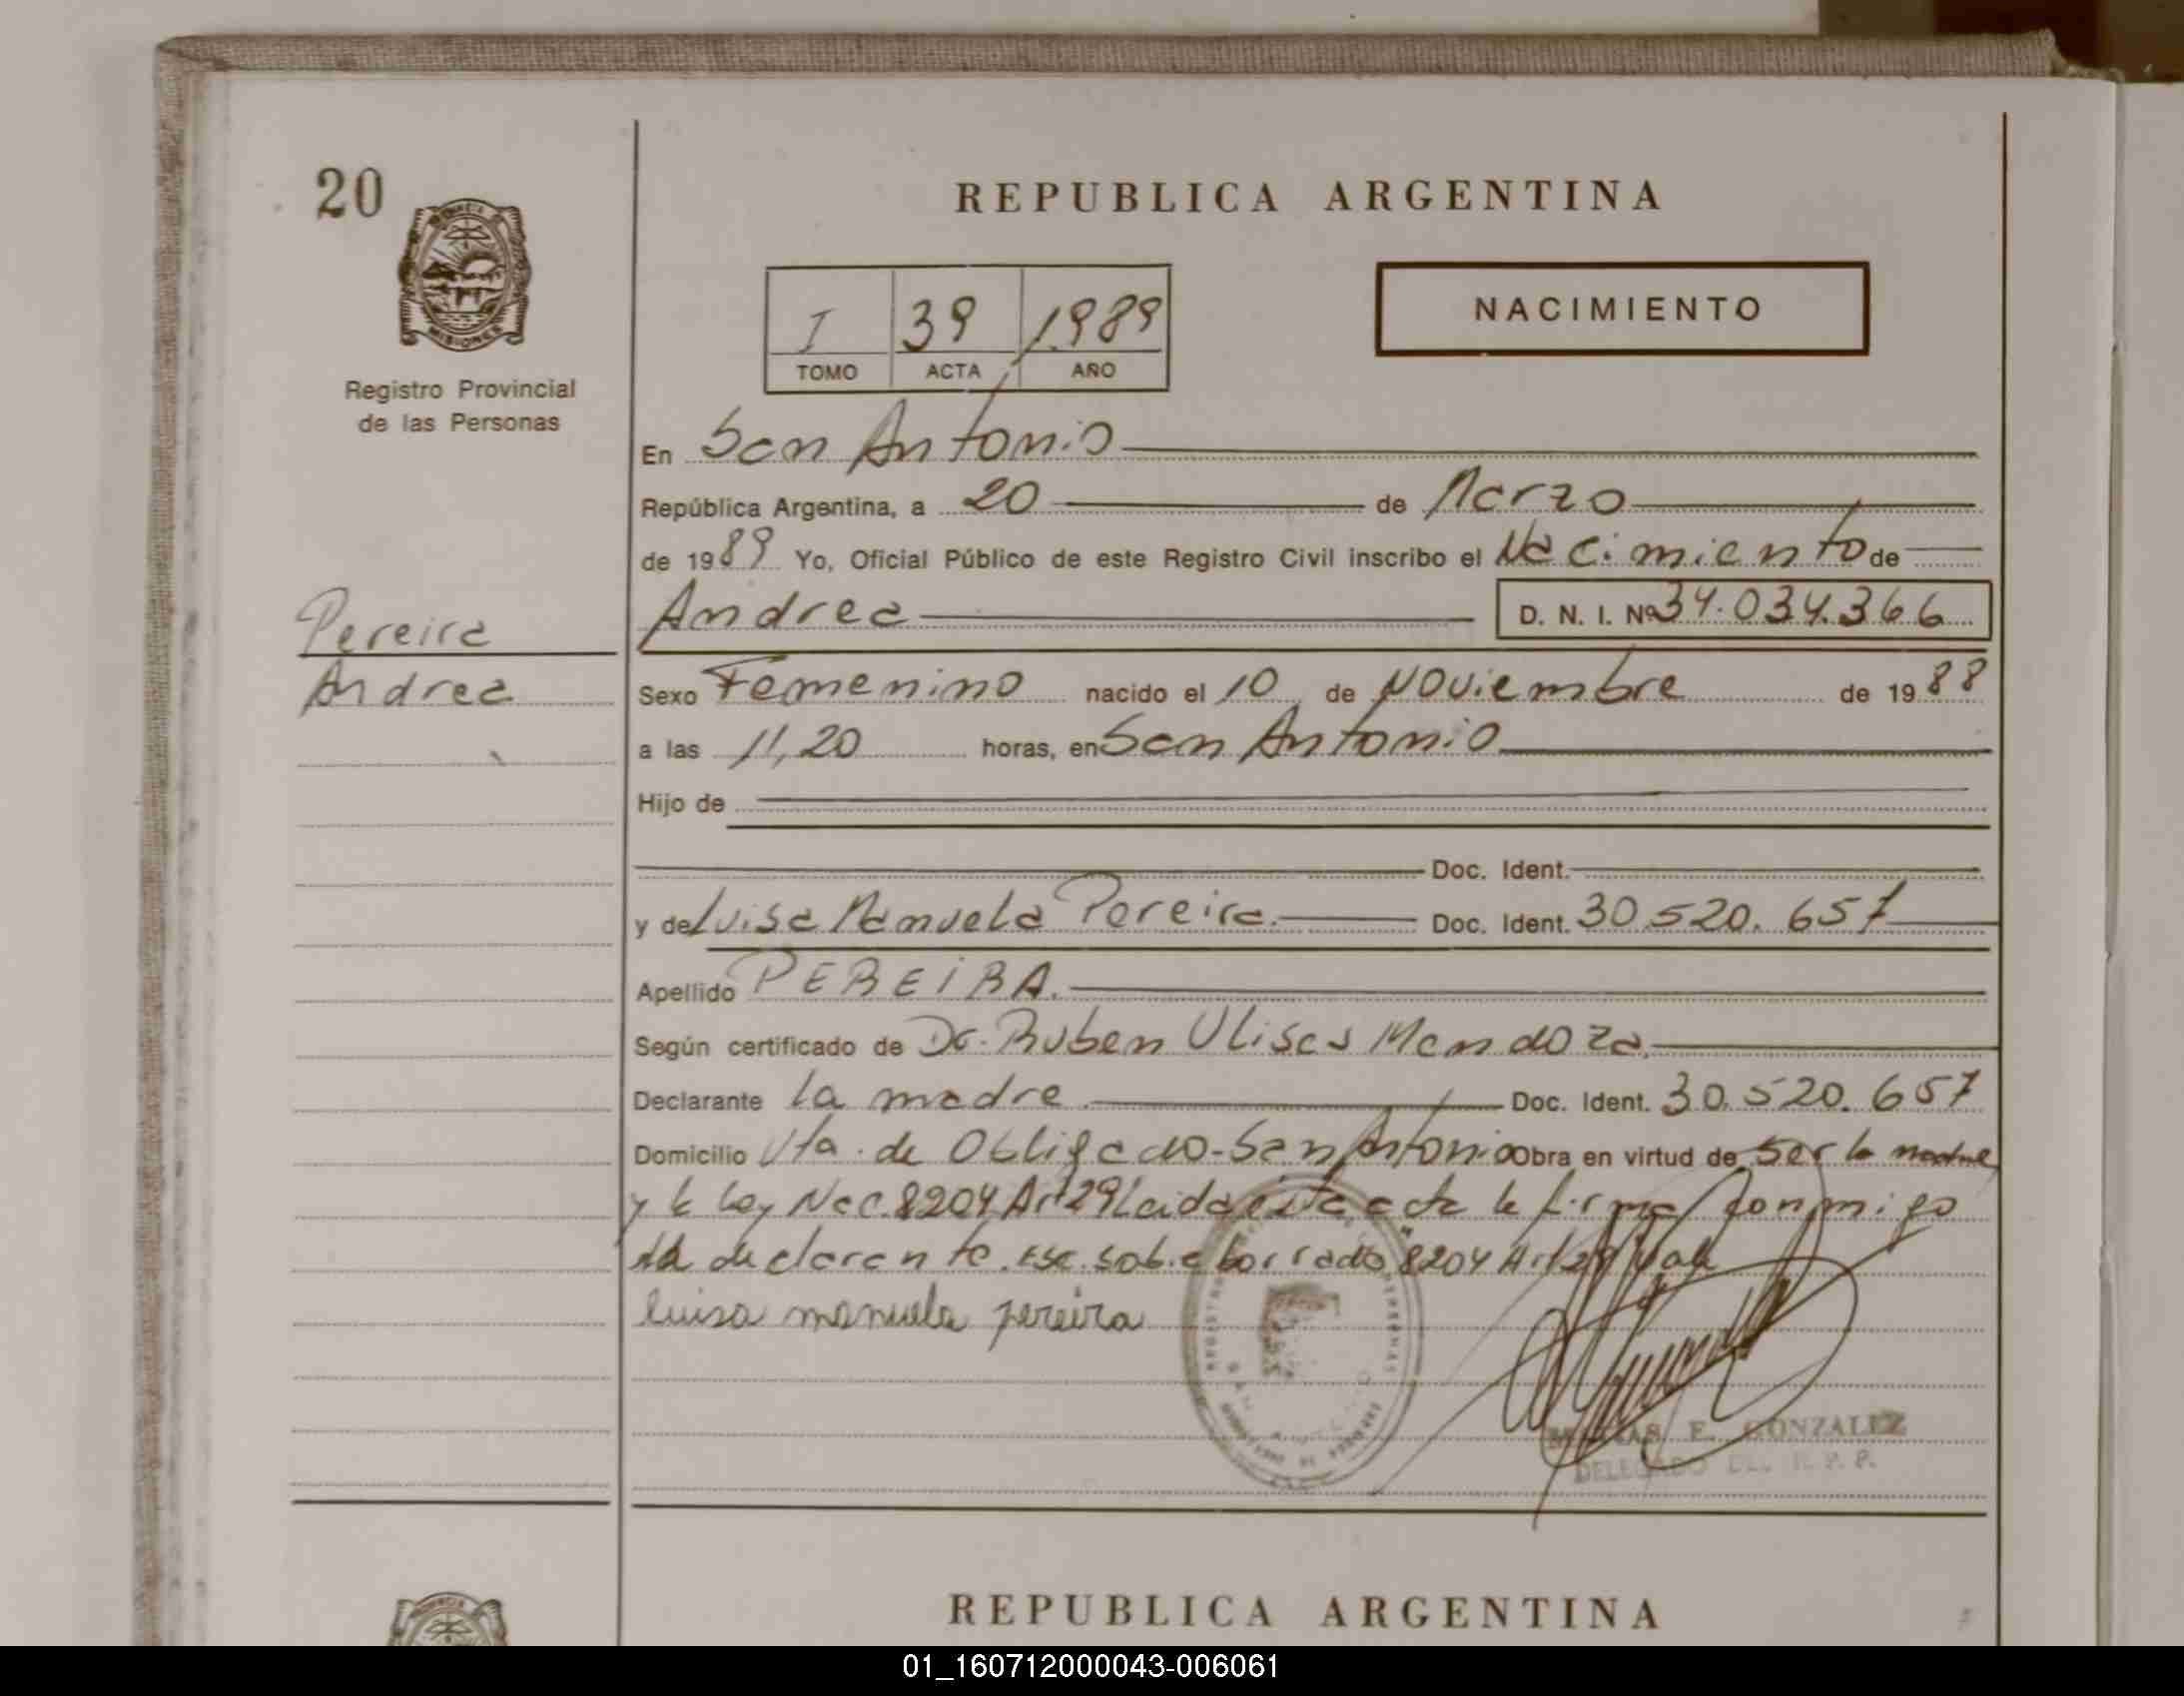 20
REPUBLICA ARGENTINA
I 39 1989
TOMO ACTA AÑO
NACIMIENTO
MISIONES
Registro Provincial
de las Personas
En San Antonio
República Argentina, a 20 de Marzo
de 1989 Yo, Oficial Público de este Registro Civil inscribo el Nacimiento de
Pereira
Andrea
Andrea D. N. I. Nº 34.034.366
Sexo Femenino nacido el 10 de Noviembre de 1988
a las 11,20 horas, en San Antonio
Hijo de
Doc. Ident.
y de Luisa Manuela Pereira. Doc. Ident. 30.520.657
Apellido PEREIRA.
Según certificado de Dr. Ruben Ulises Mendoza.
Declarante la madre Doc. Ident. 30.520.657
Domicilio Vta. de Obligado-San Antonio Obra en virtud de ser la madre
y la ley Nac. 8204 Art 29 Leida esta acta la firma conmigo
la declarante. Esc. sobre borrado "8204 Art 29 Vale
luisa manuela pereira
E. GONZALEZ
DELEGADO DEL R. P. P.
REPUBLICA ARGENTINA
01_160712000043-006061